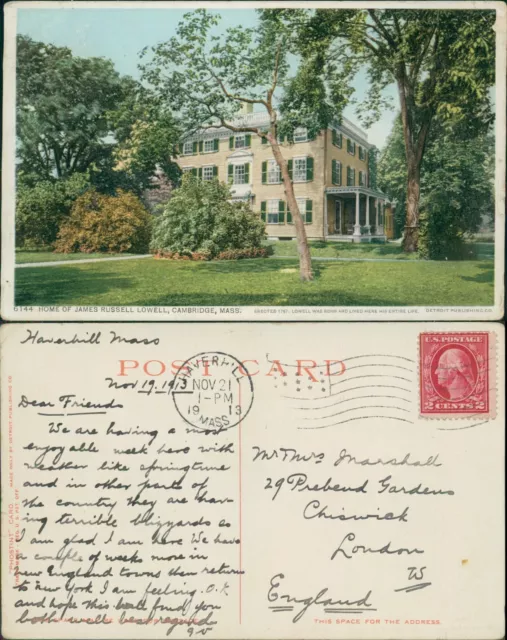 6144 HOME OF JAMES RUSSELL LOWELL, CAMBRIDGE, MASS.
ERECTED 1767. LOWELL WAS BORN AND LIVED HERE HIS ENTIRE LIFE.
DETROIT PUBLISHING CO.
Haverhill Mass
POST CARD
Nov 19, 1913
HAVERHILL
NOV 21
1-PM
1913
MASS.
U.S. POSTAGE
2 CENTS 2
Dear Friends
We are having a most
enjoyable week here with
weather like springtime
and in other parts of
the country they are hav-
ing terrible blizzards so
I am glad I am here We have
a couple of weeks more in
new England towns then return
to new York I am feeling O.K
and hope this will find you
both well best regards
Mr & Mrs Marshall
29 Prebend Gardens
Chiswick
London
W
England
THIS SPACE FOR THE ADDRESS.
"PHOSTINT" CARD
MADE ONLY BY DETROIT PUBLISHING CO.